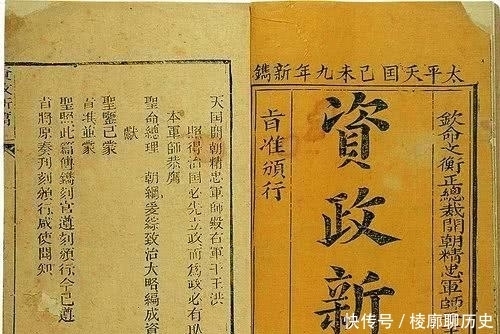 太平天囯己未九年新鐫
欽命文衡正總裁開朝精忠軍師
資政新
旨准頒行
天囯開朝精忠軍師殿右軍干王洪
照得治囯必先立政而為政必有取
本軍師恭膺
聖命總理 朝綱爰綜致治大略編成資
獻
聖鑒已蒙
旨准並蒙
聖照此篇傳鐫刻官遵刻頒行今已遵
旨將原奏刊刻頒行咸使聞知
快传号 / 棱廓聊历史